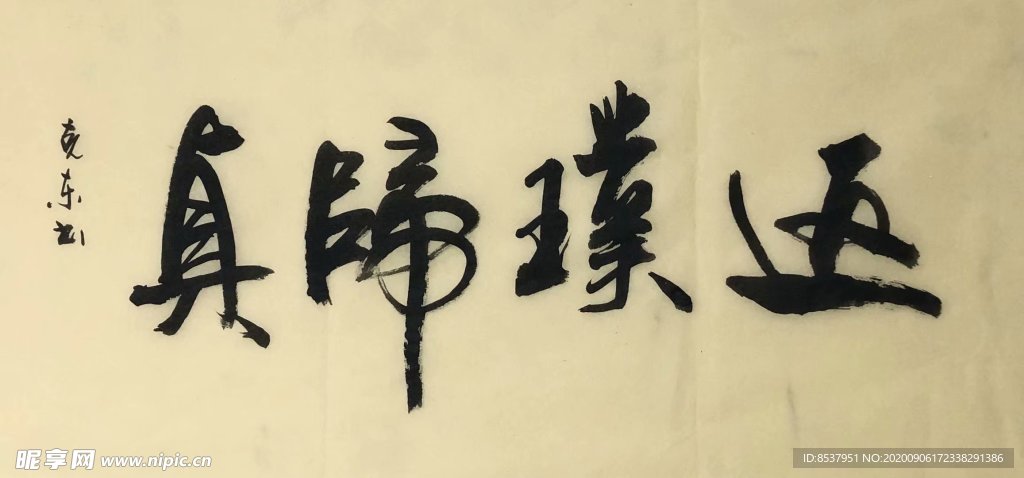 返璞歸真
克东书
昵享网 www.nipic.cn
ID:8537951 NO:20200906172338291386